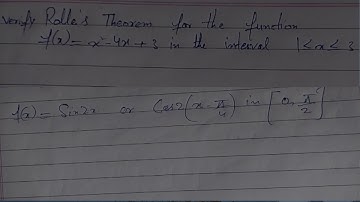 Verify Rolle's Theorem for the function
f(x) = x² - 4x + 3 in the interval 1 ≤ x ≤ 3
f(x) = Sin2x or Cos2(x - π/4) in [0, π/2]